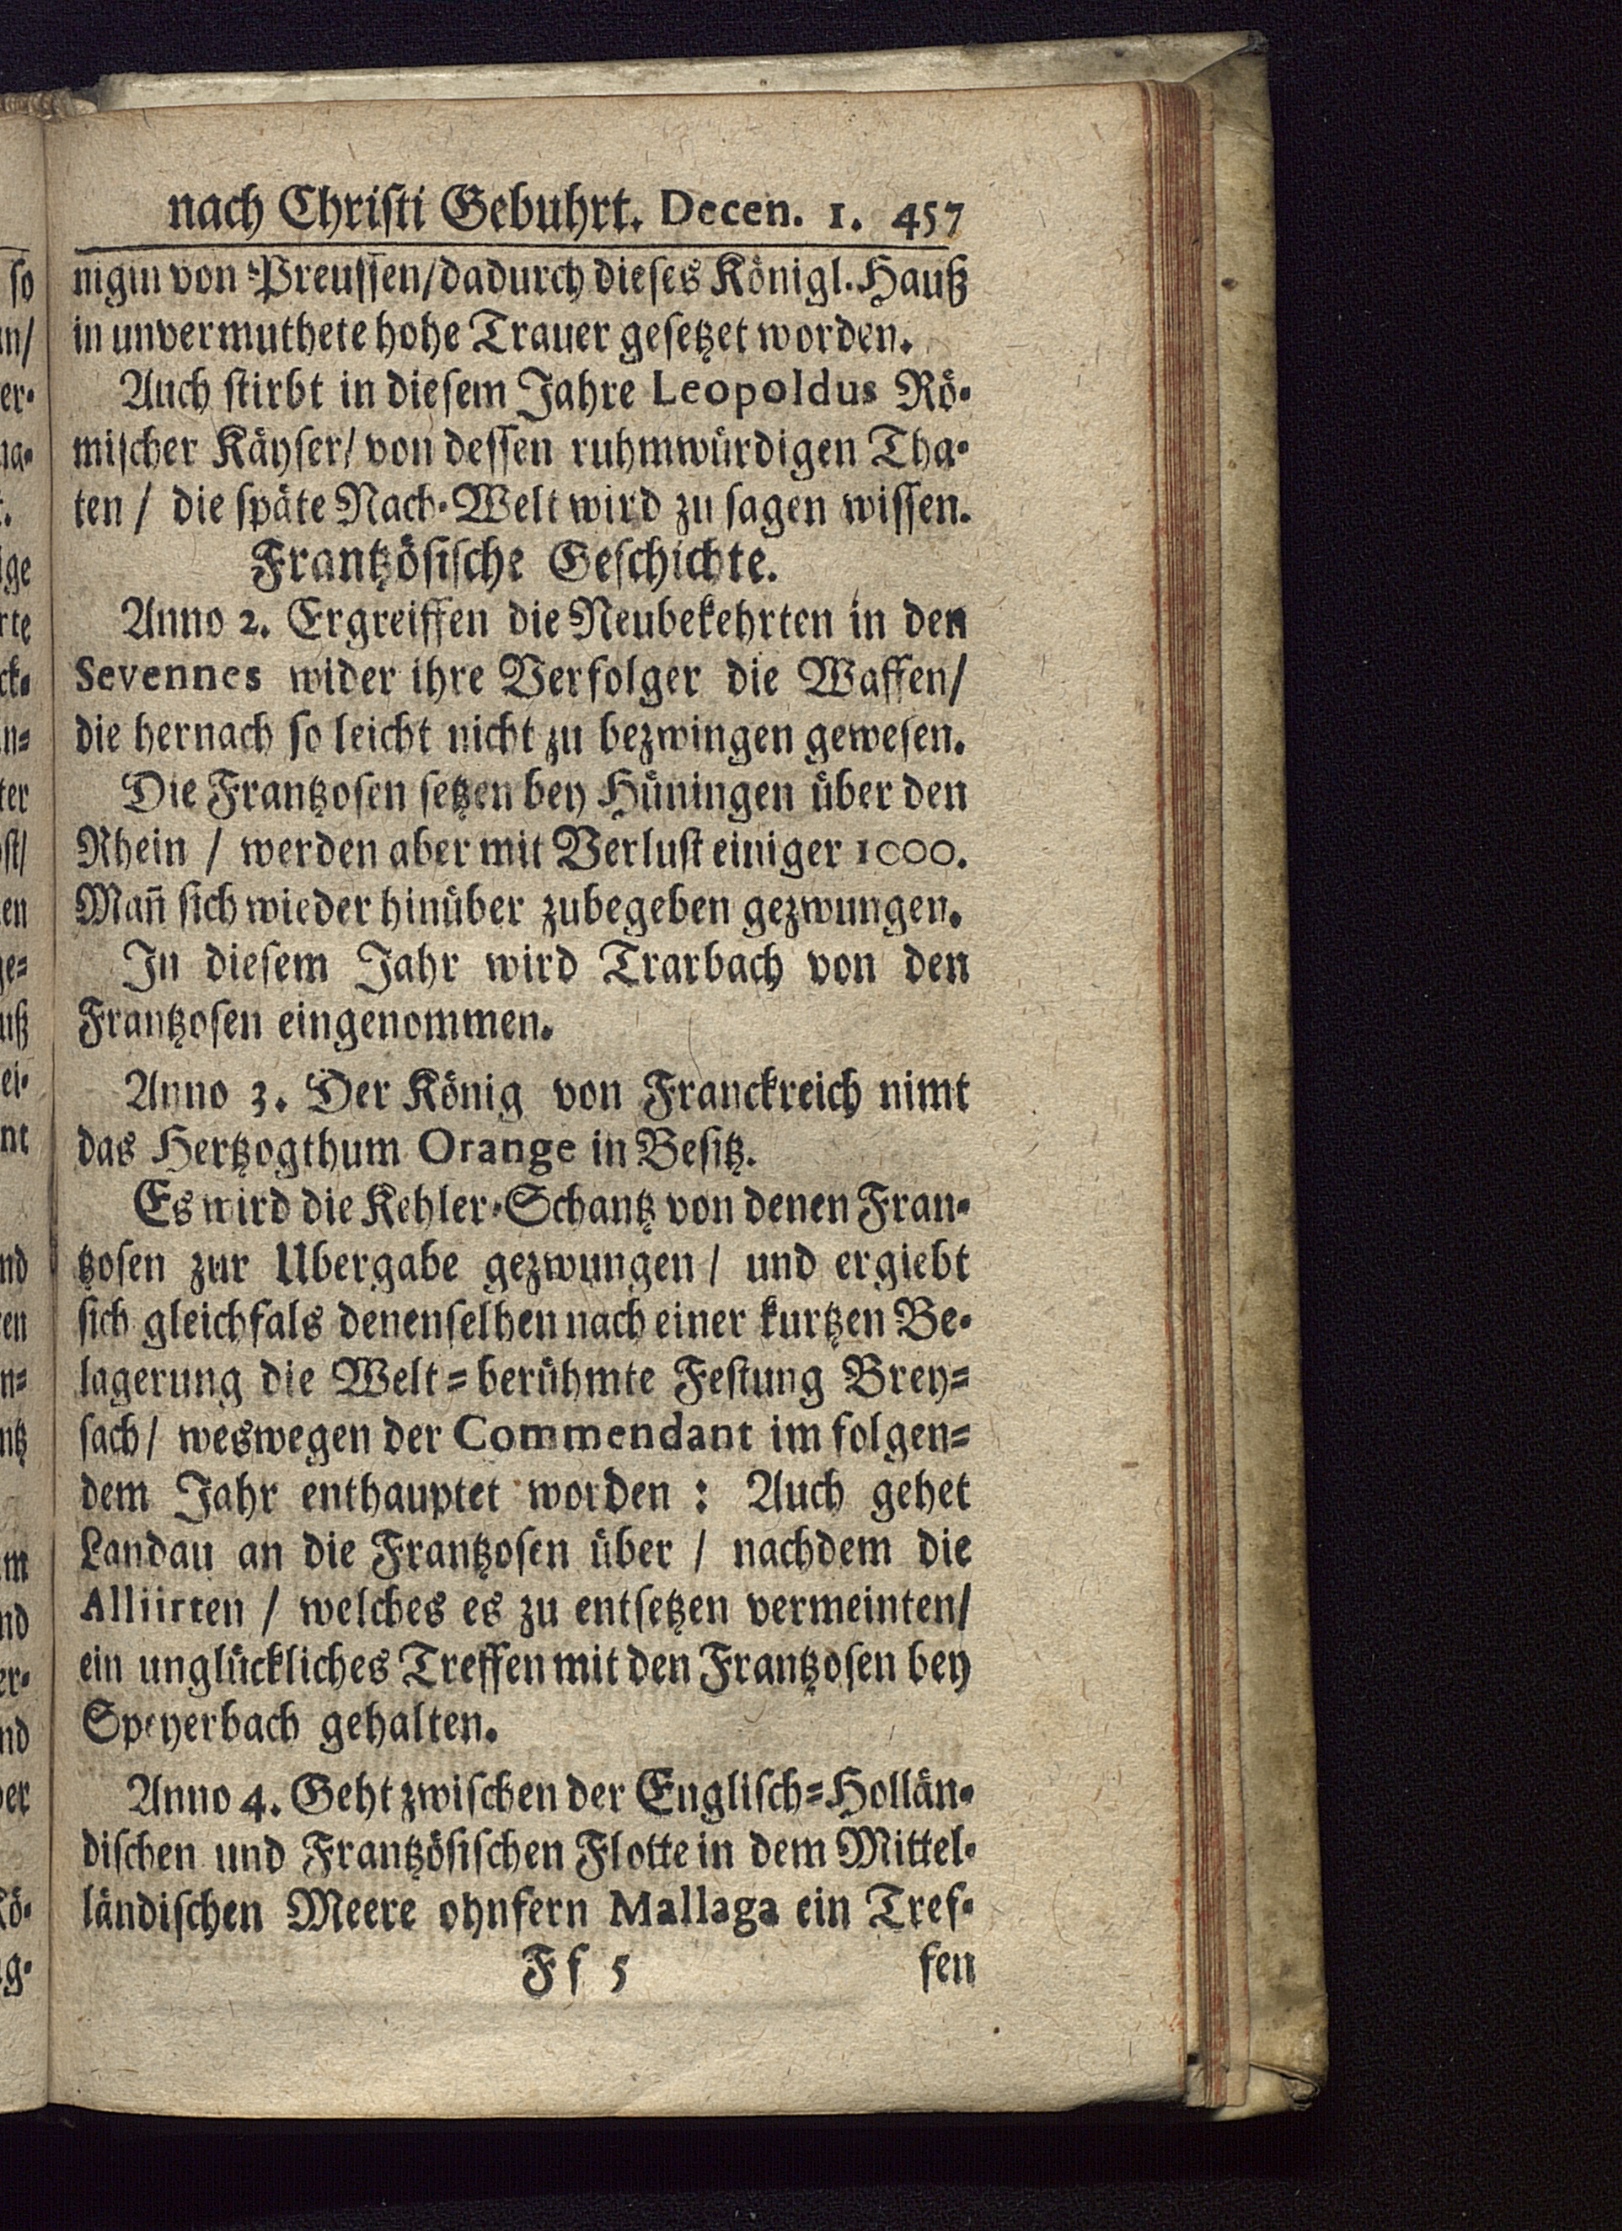 nach Christi Gebuhrt. Decen. 1. 457
nigin von Preussen/dadurch dieses Königl. Hauß
in unvermuthete hohe Trauer gesetzet worden.
Auch stirbt in diesem Jahre Leopoldus Rö-
mischer Käyser/ von dessen ruhmwürdigen Tha-
ten / die späte Nach-Welt wird zu sagen wissen.
Frantzösische Geschichte.
Anno 2. Ergreiffen die Neubekehrten in den
Sevennes wider ihre Verfolger die Waffen/
die hernach so leicht nicht zu bezwingen gewesen.
Die Frantzosen setzen bey Hüningen über den
Rhein / werden aber mit Verlust einiger 1000.
Mañ sich wieder hinüber zubegeben gezwungen.
In diesem Jahr wird Trarbach von den
Frantzosen eingenommen.
Anno 3. Der König von Franckreich nimt
das Hertzogthum Orange in Besitz.
Es wird die Kehler-Schantz von denen Fran-
tzosen zur Ubergabe gezwungen / und ergiebt
sich gleichfals denenselben nach einer kurtzen Be-
lagerung die Welt=berühmte Festung Brey=
sach/ weswegen der Commendant im folgen=
dem Jahr enthauptet worden : Auch gehet
Landau an die Frantzosen über / nachdem die
Alliirten / welches es zu entsetzen vermeinten/
ein unglückliches Treffen mit den Frantzosen bey
Speyerbach gehalten.
Anno 4. Geht zwischen der Englisch=Hollän-
dischen und Frantzösischen Flotte in dem Mittel-
ländischen Meere ohnfern Mallaga ein Tref-
Ff 5 fen